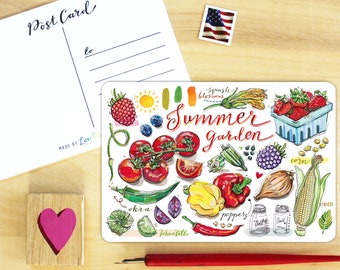 Post Card
to
MADE BY
squash
blossoms
Summer
garden
corn
okra
peppers
tomatillo